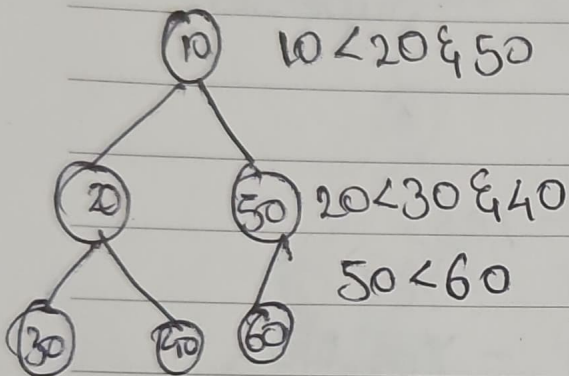 10 10 < 20 & 50
20 50 20 < 30 & 40
50 < 60
30 40 60